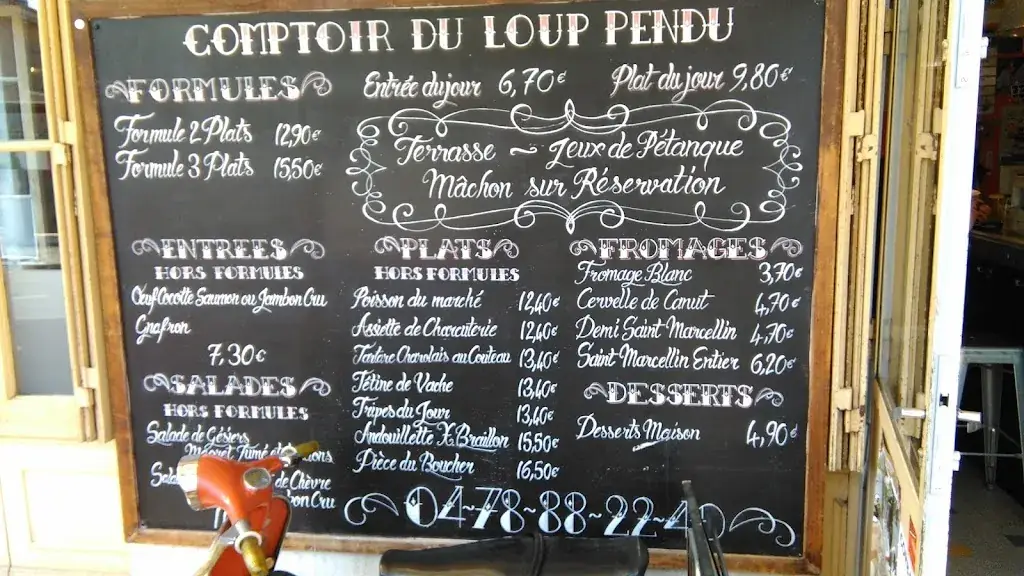 COMPTOIR DU LOUP PENDU
FORMULES
Formule 2 Plats 12,90€
Formule 3 Plats 15,50€
Entrée du jour 6,70€ Plat du jour 9,80€
Terrasse ~ Jeux de Pétanque
Mâchon sur Réservation
ENTREES
HORS FORMULES
Œuf Cocotte Saumon ou Jambon Cru
Gnafron
7,30€
SALADES
HORS FORMULES
Salade de Gésiers
Magret Fumé et
de Chèvre
Cru
PLATS
HORS FORMULES
Poisson du marché 12,40€
Assiette de Charcuterie 12,40€
Tartare Charolais au Couteau 13,40€
Tétine de Vache 13,40€
Tripes du Jour 13,40€
Andouillette Braillon 15,50€
Pièce du Boucher 16,50€
FROMAGES
Fromage Blanc 3,70€
Cervelle de Canut 4,70€
Demi Saint Marcellin 4,70€
Saint Marcellin Entier 6,20€
DESSERTS
Desserts Maison 4,90€
04~78~88~22~40